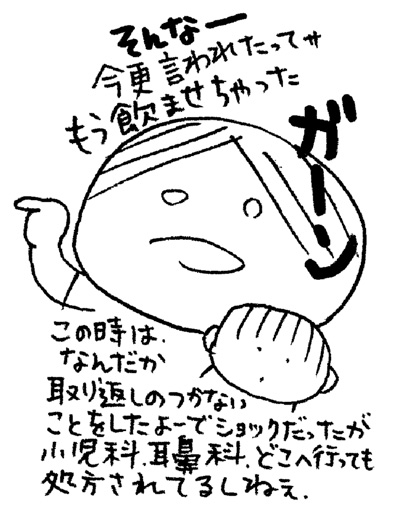 そんなー
今更言われたってサ
もう飲ませちゃった
ガーン
この時は、
なんだか
取り返しのつかない
ことをしたよーでショックだったが
小児科、耳鼻科、どこへ行っても
処方されてるしねぇ、